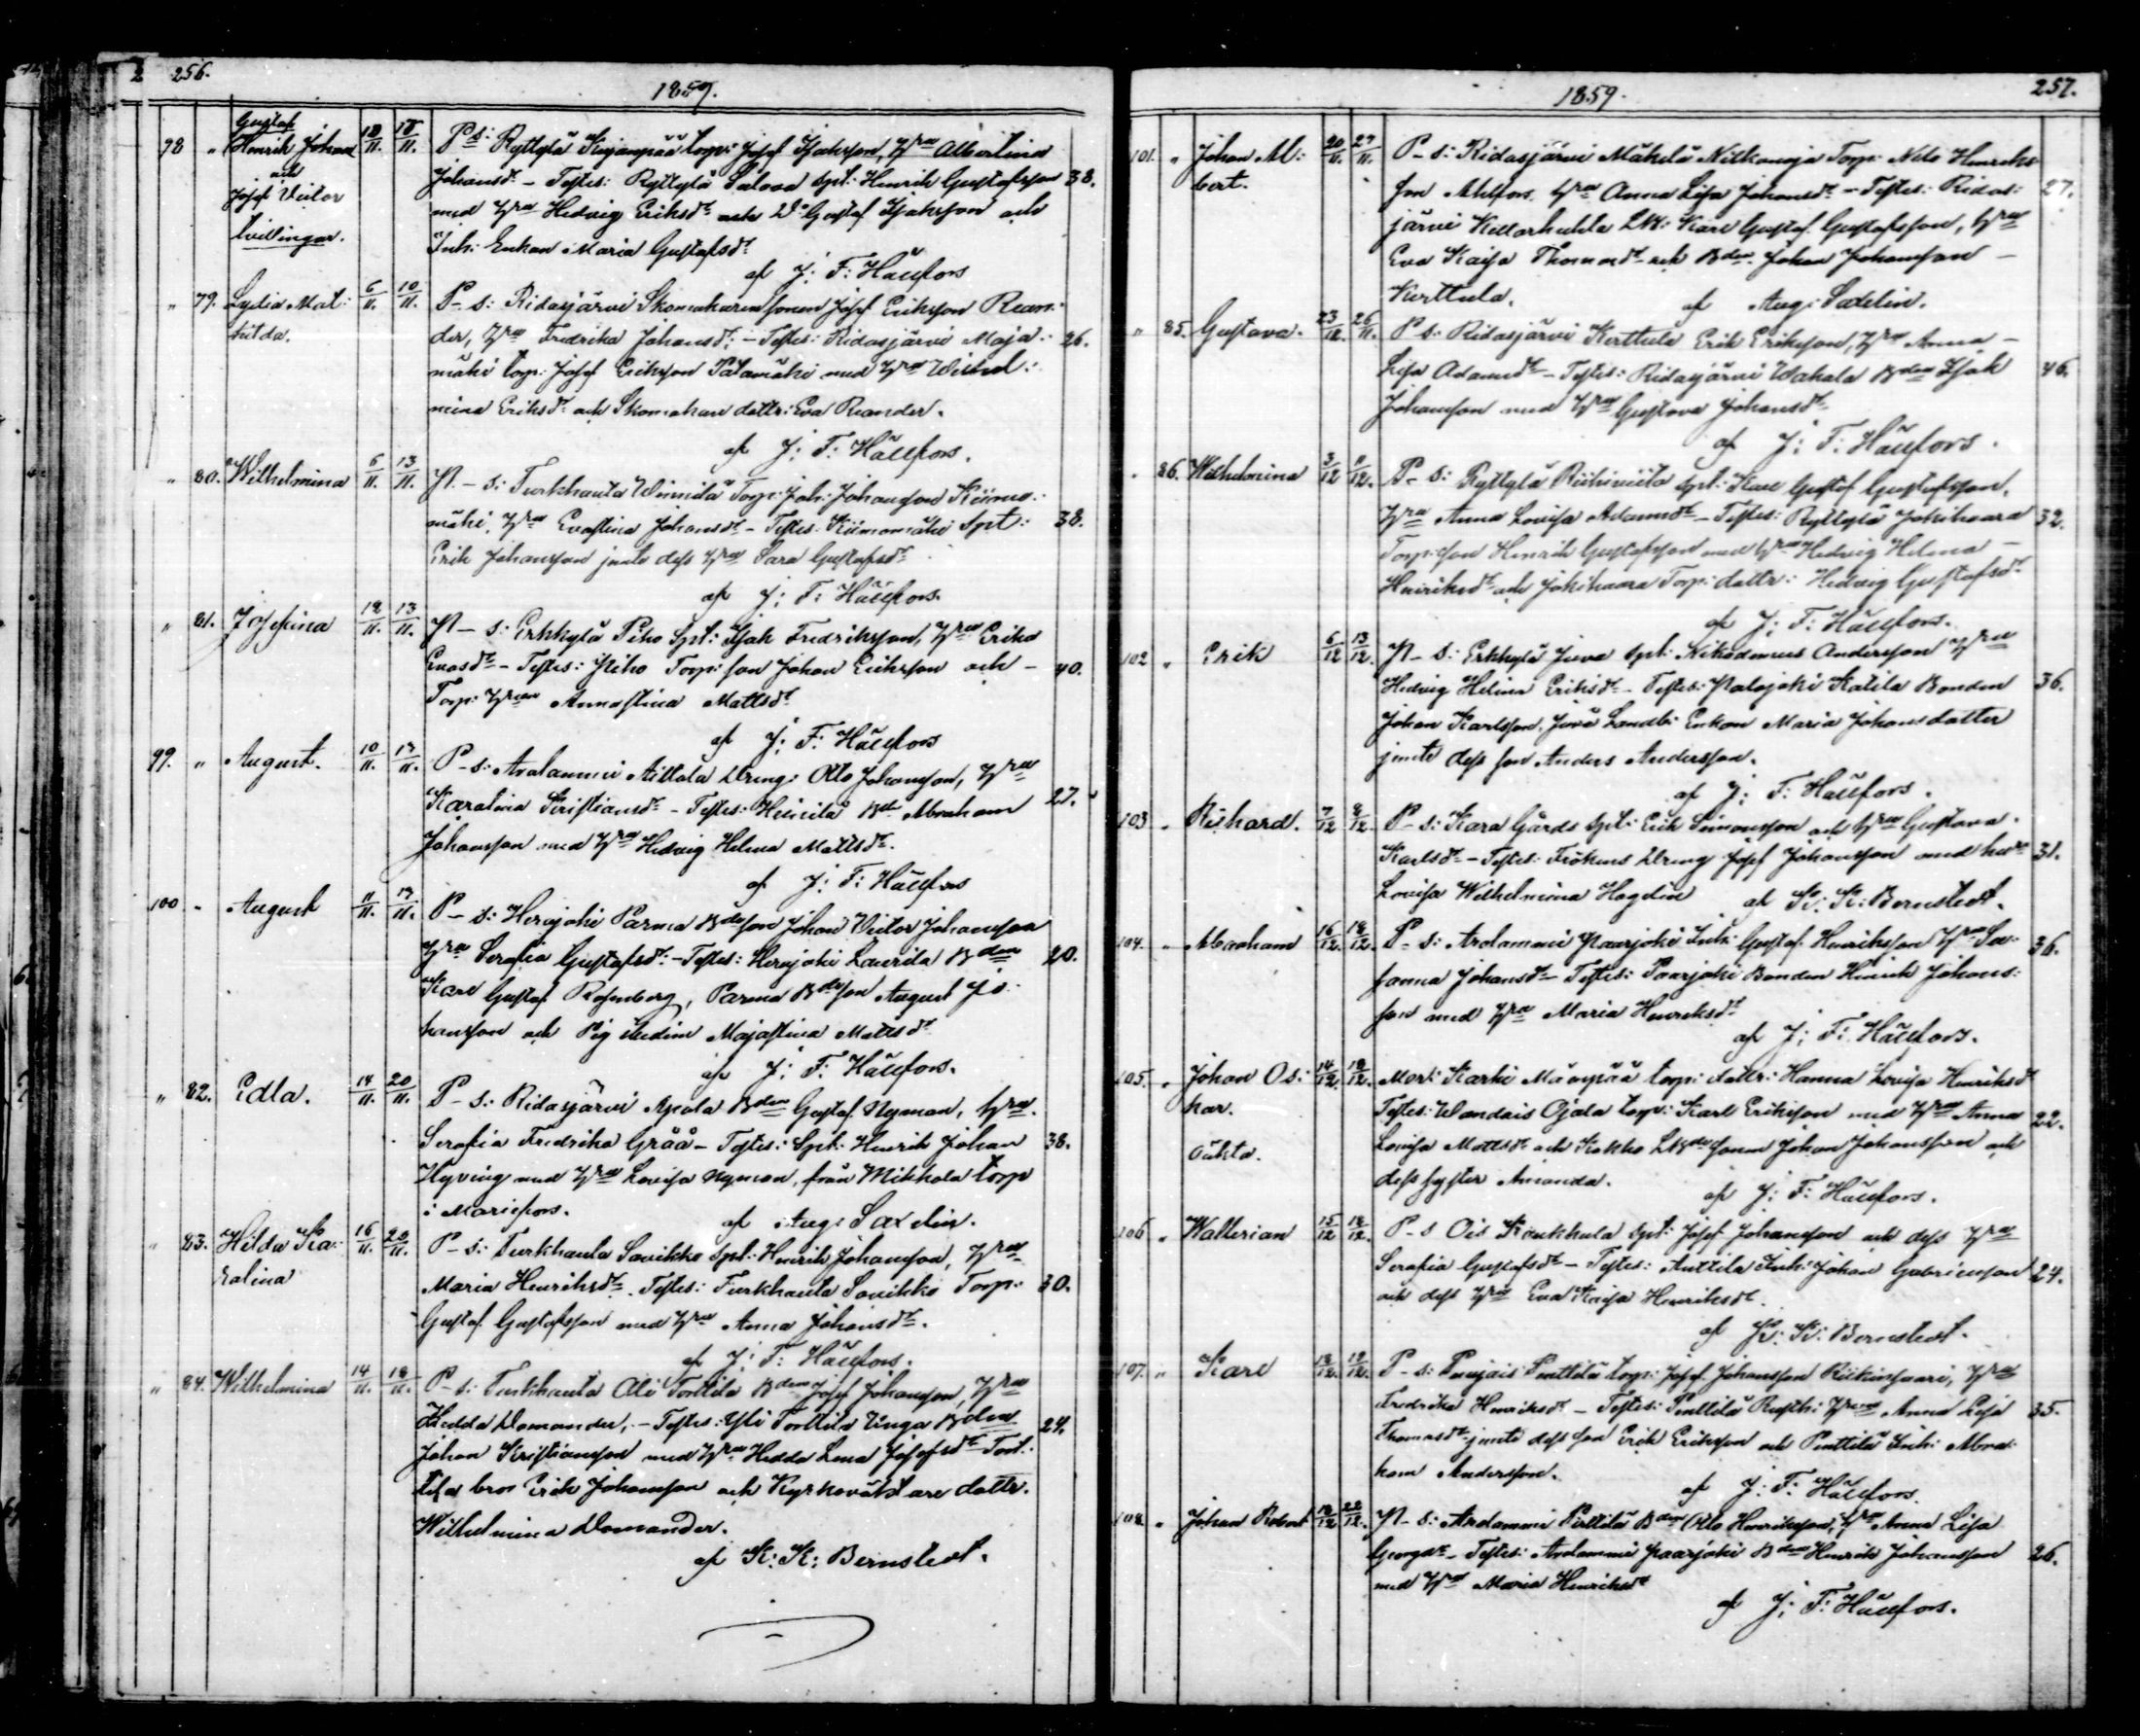 2 256.
1859.
Gustaf
78 " Henrik Johan 10/11. 11/11. P. s: Ryttylä Kujanpää torp: Josef Isaksson, Hru Albertina
och
Johansdr - Testes: Ryttylä Salora spt: Henrik Gustafsson 38.
Josef Victor
med Hru Hedvig Eriksdr och Dr. Gustaf Isaksson och
tvillingar.
Inh: Enkan Maria Gustafsdr
af J: F: Hällfors
" 79. Lydia Mat: 6/11. 10/11. P. s: Ridasjärvi Skomakaresonen Josef Eriksson Rean:
hilda. der, Hru Fredrika Johansdr: - Testes: Ridasjärvi Maja: 26.
mäki torp: Josef Eriksson Palamäki med Hru Wilhel:
mina Eriksdr och Skomakare dottr: Eva Reander.
af J: F: Hällfors.
" 80. Wilhelmina 6/11. 13/11. N. - s: Turkhauta Torp: Joh: Johansson Kiima:
mäki, Hru Evastina Johansdr - Testes: Kiimamäki Spt: 38.
Erik Johansson jemte dess Hru Sara Gustafsdr
af J: F: Hällfors.
" 81. Josefina 12/11. 13/11. N - s: Erkkylä Piho Spt: Isak Fredriksson, Hru Erika
Enosdr - Testes: Piho Torp: son Johan Eriksson och - 40.
Torp: Hrun Annastina Mattsdr
af J: F: Hällfors
99. " August. 10/11. 17/11. P - s: Arolammi Aittola Dräng: Otto Johansson, Hru
Karolina Kristiansdr - Testes: Heinilä Abraham 27.
Johansson med Hru Hedvig Helena Mattsdr.
af J: F: Hällfors
100 " August 11/11. 17/11. P - s: Herajoki Parma Bdeson Johan Victor Johansson
Hru Serafia Gustafsdr: - Testes: Herajoki Laurila Bden 20.
Karl Gustaf Rosenberg, Parma Bdeson August Jo:
hansson och Pig Majastina Mattsdr
af J: F: Hällfors.
" 82. Edla. 14/11. 20/11. P - s: Ridasjärvi Bden Gustaf Nyman, Hru
Serafia Fredrika Gråå - Testes: Spt: Henrik Johan 38.
Hyving med Hru Lovisa Nyman, från Mikkola torp
i Mariefors.
af Aug: Saxelin.
" 83. Hilda Ka: 16/11. 20/11. P - s: Turkhauta Savikko Spt: Henrik Johansson, Hru
rolina Maria Henriksdr. Testes: Turkhauta Savikko Torp: 30.
Gustaf Gustafsson med Hru Anna Johansdr.
af J: F: Hällfors.
" 84. Wilhelmina 14/11. 18/11. P - s: Turkhauta Ali Torttila Bden Josef Johansson, Hru
Hedda Domander, - Testes: Yli Torttila Unga Bden 24.
Johan Kristiansson med Hru Hedda Lena Josefsdr Tort:
tila bror Erik Johansson och Kyrkoväktare dottr.
Wilhelmina Domander.
af K: K: Bernstedt.
1859.
257.
101. " Johan Al: 20/11. 27/11. P - s: Ridasjärvi Mäkelä Torp: Nils Henriks
bert. son Ahlfors, Hru Anna Lisa Johansdr - Testes: Ridas: 27.
järvi Kellarhuhta Karl Gustaf Gustafsson, Hru
Eva Kaisa Thomasdr och Bden Johan Johansson -
Kerttula. af Aug: Saxelin.
" 85. Gustava. 23/11. 26/11. P s: Ridasjärvi Kerttula Erik Eriksson, Hru Anna -
Lisa Adamsdr - Testes: Ridasjärvi Wakala Bden Isak 46.
Johansson med Hru Gustava Johansdr
af J: F: Hällfors.
" 86. Wilhelmina 3/12 P - s: Ryttylä Riihiviita Spt: Karl Gustaf Gustafsson,
Hru Anna Lovisa Adamsdr - Testes: Ryttylä Jokihaara 32.
Torp: son Henrik Gustafsson med Hru Hedvig Helena -
Henriksdr och Jokihaara Torp: dottr: Hedvig Gustafsdr
af J: F: Hällfors.
102 " Erik 6/12 13/12. N - s: Erkkylä Juva Spt: Nikodemus Andersson Hru
Hedvig Helena Eriksdr - Testes: Palojoki Katila Bonden 36.
Johan Karlsson, Juva Landb: Enkan Maria Johansdotter
jemte dess son Anders Andersson.
af J: F: Hällfors.
103 " Richard. 7/12 8/12. P - s: Kara Gårds Spt: Erik Simonsson och Hru Gustava
Karlsdr - Testes: Frökens Dräng Josef Johansson med 31.
Lovisa Wilhelmina Hagelin af K: K: Bernstedt.
104. " Abraham 16/12. 18/12. P - s: Arolammi Paarjoki Inh: Gustaf Henriksson Hru Su: 36.
sanna Johansdr - Testes: Paarjoki Bonden Henrik Johans:
son med Hru Maria Henriksdr
af J: F: Hällfors.
105. " Johan Os: 14/12. 18/12. Mor: Karhi Mäenpää torp: dottr: Hanna Lovisa Henriksdr
kar. Testes: Wandais Ojala torp: Karl Eriksson med Hru Anna 22.
oäkta. Lovisa Mattsdr och Kokko sonen Johan Johansson och
dess syster Amanda.
af J: F: Hällfors.
106 " Wallerian 15/12 18/12. P - s Ois Koukkula Spt: Josef Johansson och dess Hru
Serafia Gustafsdr - Testes: Anttila Inh: Johan Gabrielsson 24.
och dess Hru Eva Kaisa Henriksdr.
af K: K: Bernstedt.
107. " Karl 18/12. P - s: Punjais Penttilä torp: Josef Johansson Hru
Fredrika Henriksdr - Testes: Penttilä Rusth: Anna Lisa 35.
Thomasdr jemte dess son Erik Eriksson och Penttilä Inh: Abra:
ham Andersson.
af J: F: Hällfors.
108. " Johan Robert 18/12 22/12. N - s: Arolammi Perttilä Bden Otto Henriksson, Hru Anna Lisa
Georgsdr - Testes: Arolammi Paarjoki Bden Henrik Johansson 26.
med Hru Maria Henriksdr
af J: F: Hällfors.